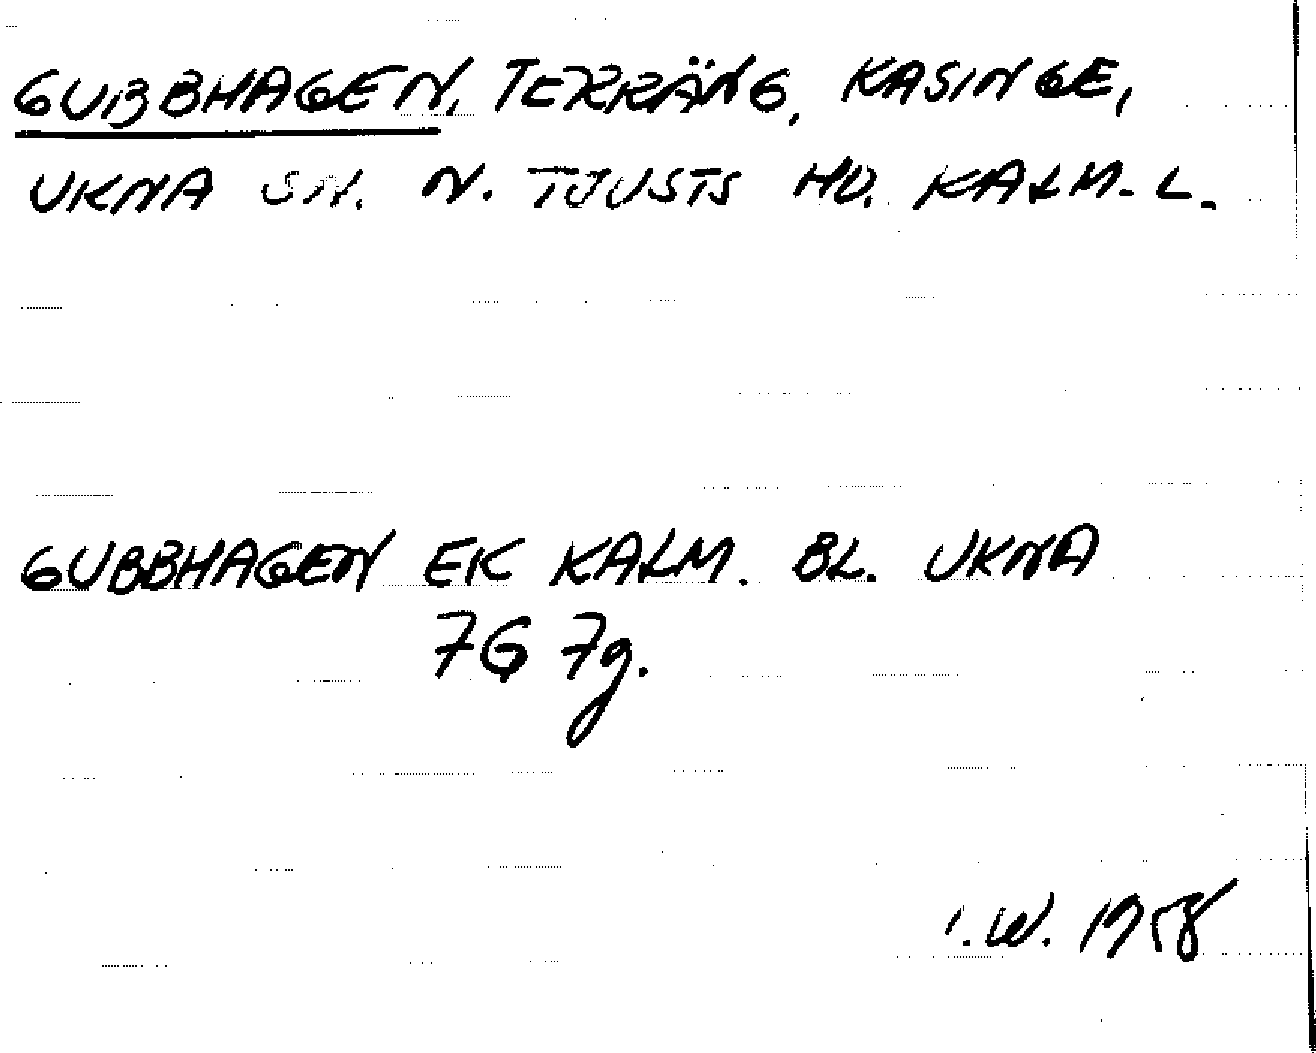 GUBBHAGEN, TERRÄNG, KASINGE,
UKNA SN. N. TJUSTS HD. KALM. L.
GUBBHAGEN EK KALM. BL. UKNA
7G 7g.
I.W. 1958